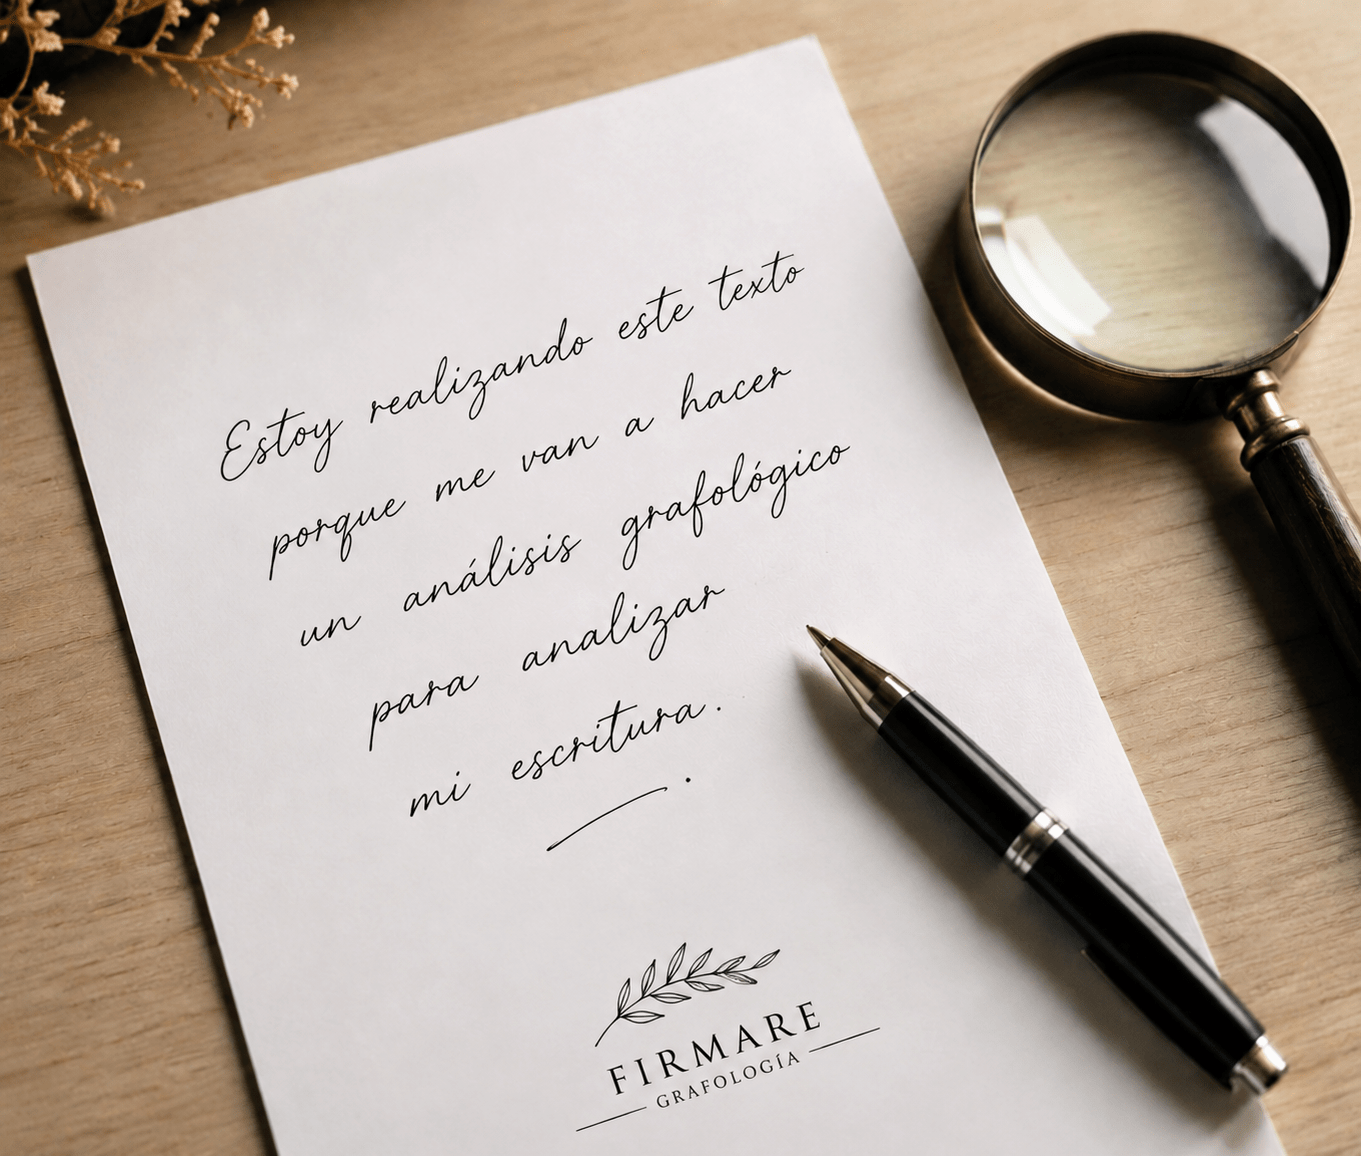 Estoy realizando este texto
porque me van a hacer
un análisis grafológico
para analizar
mi escritura.
FIRMARE
GRAFOLOGÍA